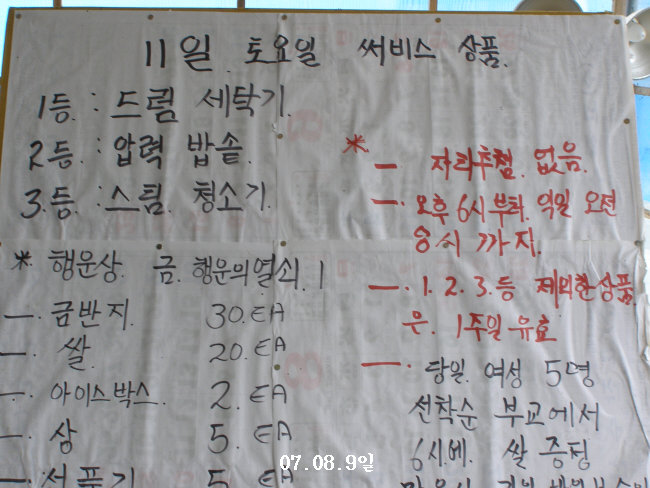 11일 토요일 써비스 상품.
1등. : 드럼 세탁기.
2등. : 압력 밥솥.
3.등. : 스팀. 청소기.
* 행운상. 금. 행운의열쇠. 1
一. 금반지. 30.EA
一. 쌀. 20.EA
一. 아이스박스. 2.EA
一. 상 5.EA
一 선풍기 5 EA
*
一 자리추첨. 없음.
一. 오후 6시부터. 익일 오전
8시 까지.
一. 1.2.3.등 제외한상품
은. 1주일유효
一. 당일. 여성 5명
선착순 부교에서
6시.에. 쌀 증정
07.08.9일